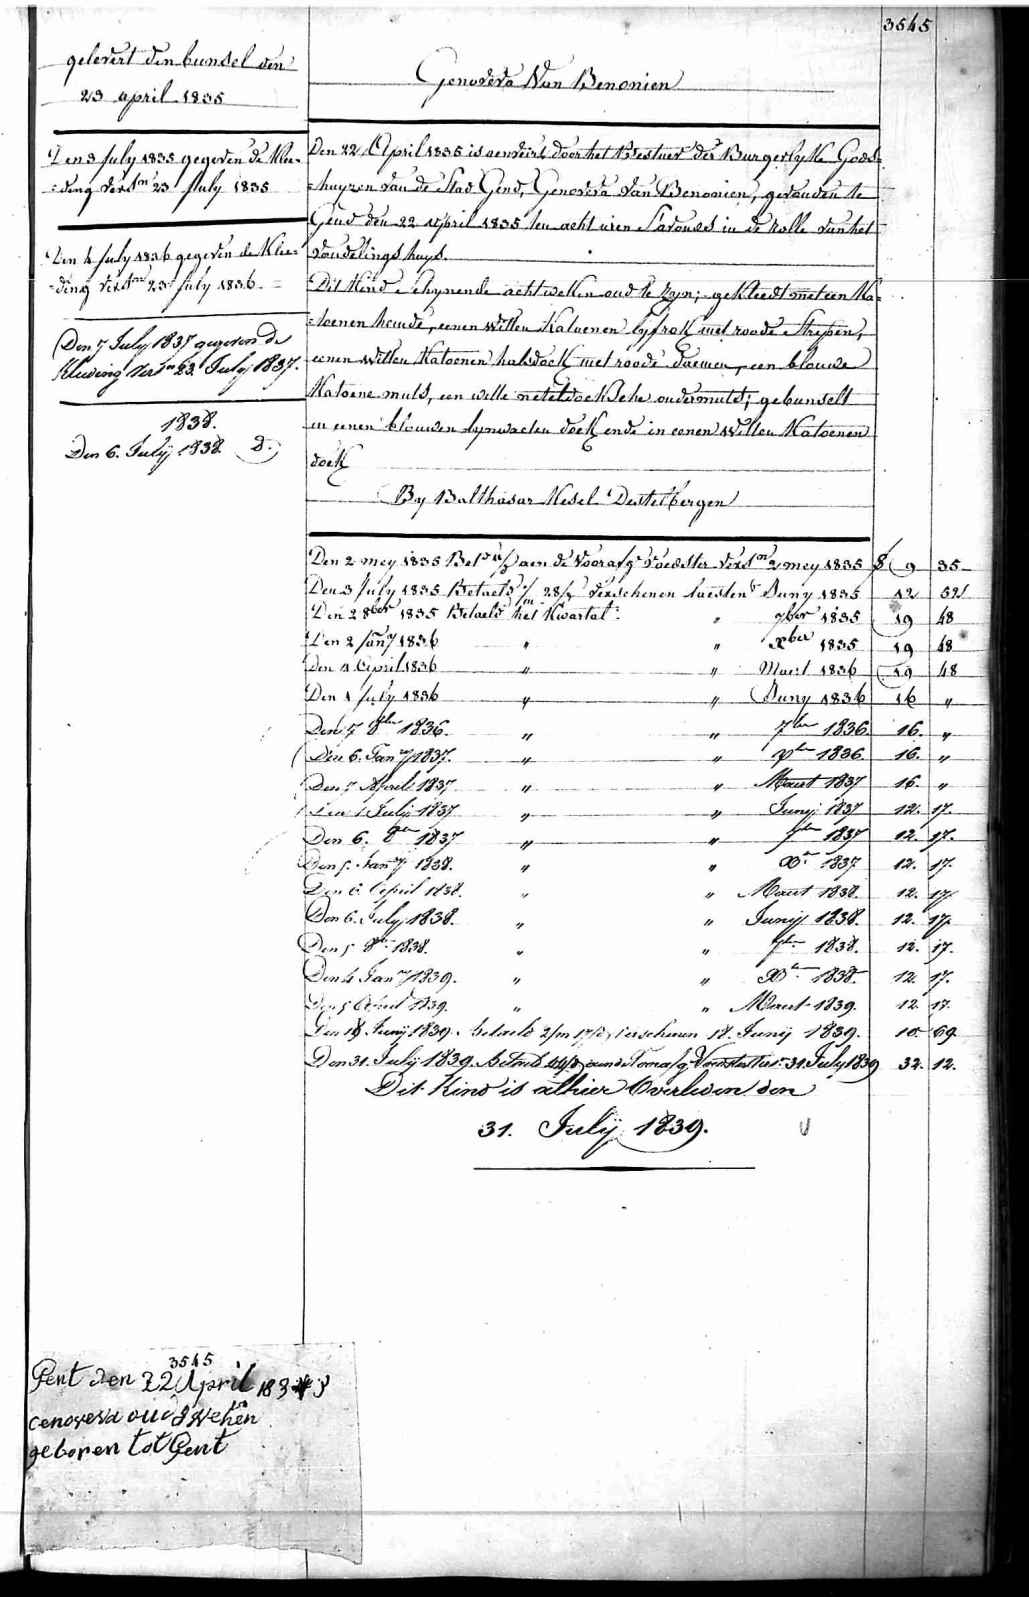 3545
gelevert den bunsel den
23 april 1835
Genoveva Van Benonien
Den 3 July 1835 gegeven de Klee=
=ding vers.en 23 July 1835
Den 4 July 1836 gegeven de Klee=
=ding vers.en 23 July 1836.
Den 7 July 1837 gegeven de
Kleeding vers.n 23. July 1837.
1838.
Den 6. July 1838. D.
Den 22 April 1835 is aenveird door het Bestuer der Burgerlyke Gods=
=huyzen van de Stad Gend, Genoveva Van Benonien, gevonden te
Gend den 22 April 1835 ten acht uren S'avonds in de rolle van het
vondelings huys.
Dit Kind schynende acht weken oud te zyn; gekleedt met een Ka=
=toenen hemde, eenen witten Katoenen lyfrok met roode Strepen,
eenen witten Katoenen halsdoek met roode , een blauwe
Katoene muts, een witte neteldoeksche ondermuts; gebunselt
in eenen blauwen lynwaeten doek ende in eenen Witten Katoenen
doek
By Balthasar Mesel Destelbergen
Den 2 mey 1835 aen de vooraf voedster vers.en 2 mey 1835 9 35
Den 3 July 1835 Betaeld 28/ verschenen laesten Juny 1835 12 52
Den 2 8ber 1835 Betaeld het Kwartal 7ber 1835 19 48
Den 2 Jany 1836 " " Xber 1835 19 48
Den 4 April 1836 " " Maert 1836 19 48
Den 1 July 1836 " " Juny 1836 16 "
Den 5 8ber 1836. " " 7ber 1836. 16. "
Den 6. Jany 1837. " " Xber 1836. 16. "
Den 7 April 1837 " " Maert 1837 16. "
Den 1 July 1837 " " Juny 1837 12. 17.
Den 6. 8ber 1837 " " 7ber 1837 12. 17.
Den 5. Jany 1838. " " Xr 1837 12. 17.
Den 6 April 1838. " " Maert 1838. 12. 17.
Den 6. July 1838. " " Juny 1838. 12. 17.
Den 5 8br 1838. " " 7br 1838. 12. 17.
Den 4 Jany 1839. " " Xbr 1838. 12. 17.
Den 5 April 1839. " " Maert 1839. 12 17.
Den 18 Juny 1839. betaelt verschenen 18. Juny 1839. 10. 69.
Den 31. July 1839. Betaeld 31 July 1839 32. 12.
Dit Kind is alhier Overleden den
31. July 1839.
3545
Gent den 22 April 1835
cenoveva oud
geboren tot Gent